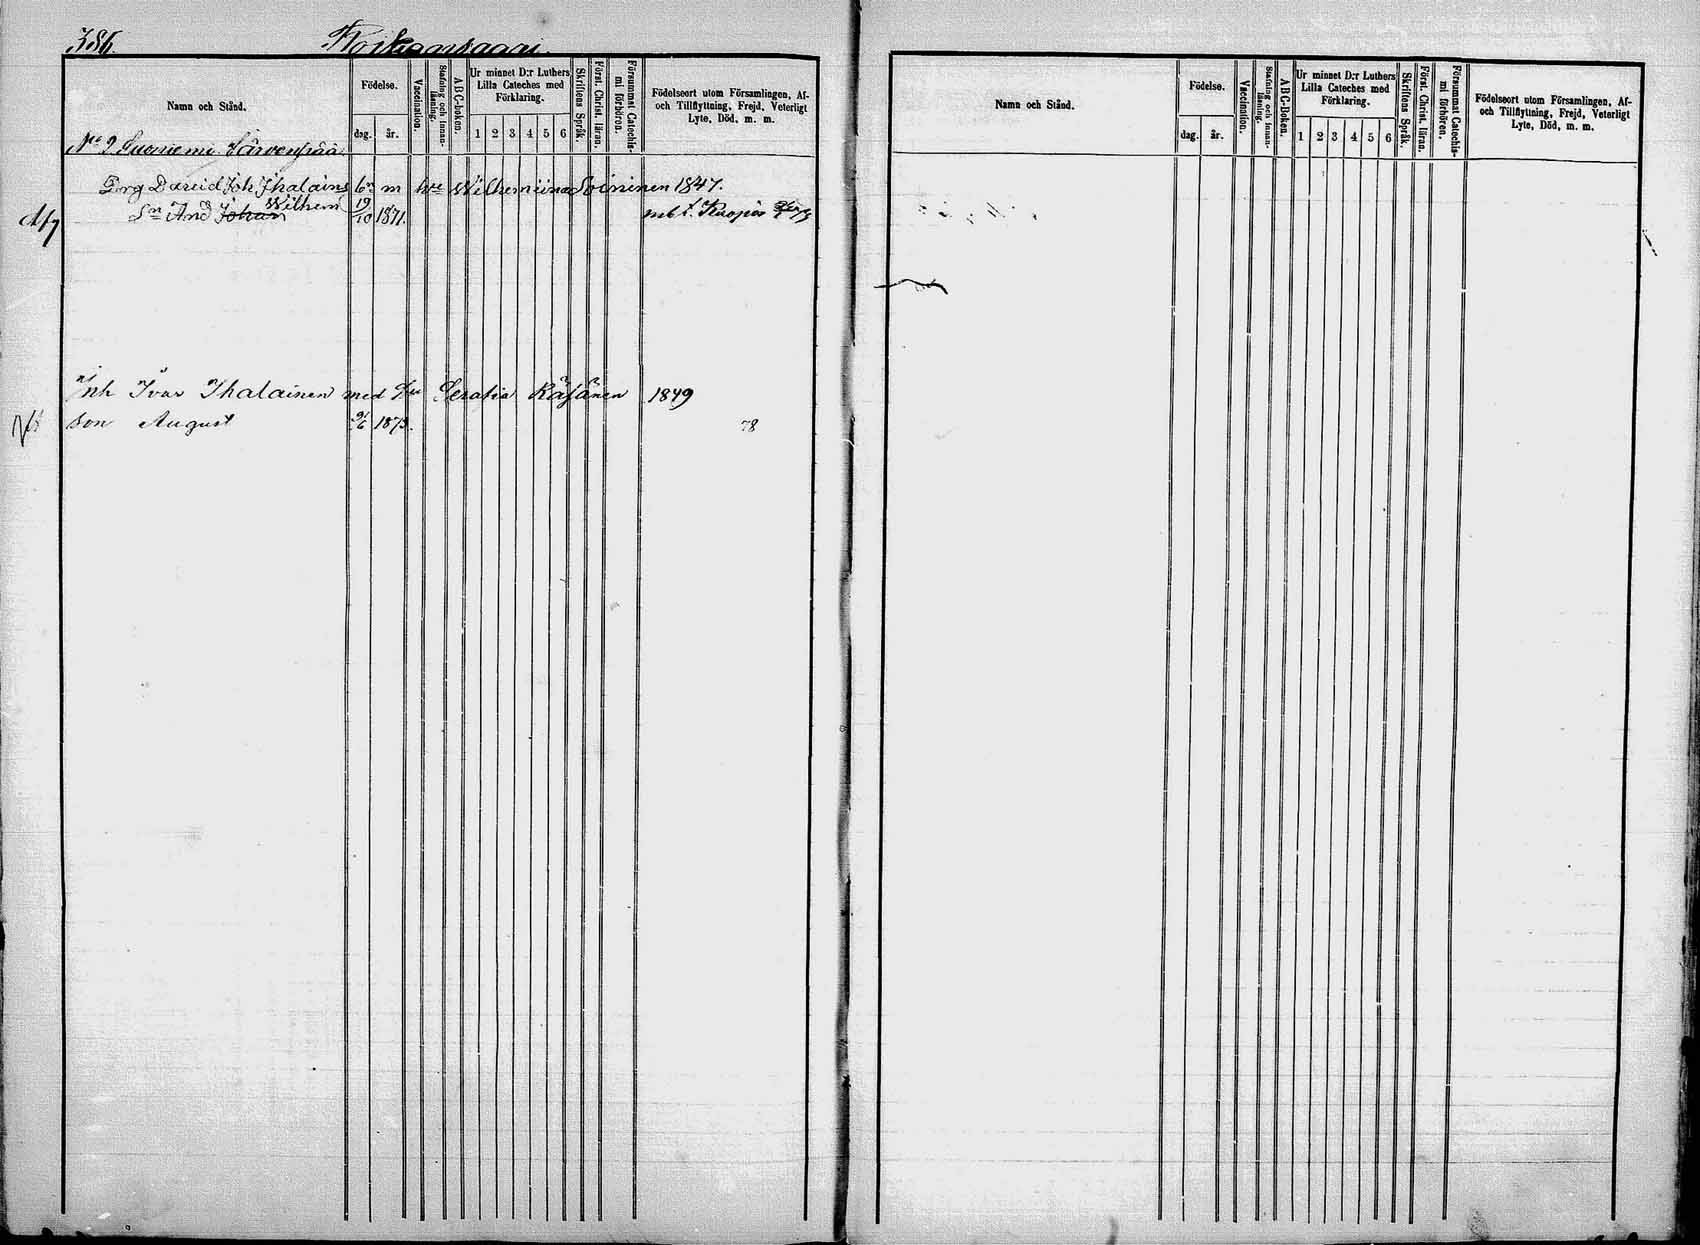 386.
Namn och Stånd.
Födelse.
dag. år.
Vaccination.
Stafning och innanläsning.
ABC-boken.
Ur minnet D:r Luthers
Lilla Cateches med
Förklaring.
1 2 3 4 5 6
Skriftens Språk.
Först. Christ. läran.
Försummat Catechis-
mi förhören.
Födelseort utom Församlingen, Af-
och Tillflyttning, Frejd, Veterligt
Lyte, Död, m. m.
No 2 Suoniemi Järvenpää
David Joh Ihalainen m Wilhemiina Soininen 1847.
Wilhem
Sn And Johan 19/10 1871. Kuopio
Inh Ivar Ihalainen med Serafia Räsänen 1849
son August 1875. 78
Namn och Stånd.
Födelse.
dag. år.
Vaccination.
Stafning och innanläsning.
ABC-boken.
Ur minnet D:r Luthers
Lilla Cateches med
Förklaring.
1 2 3 4 5 6
Skriftens Språk.
Först. Christ. läran.
Försummat Catechis-
mi förhören.
Födelseort utom Församlingen, Af-
och Tillflyttning, Frejd, Veterligt
Lyte, Död, m. m.